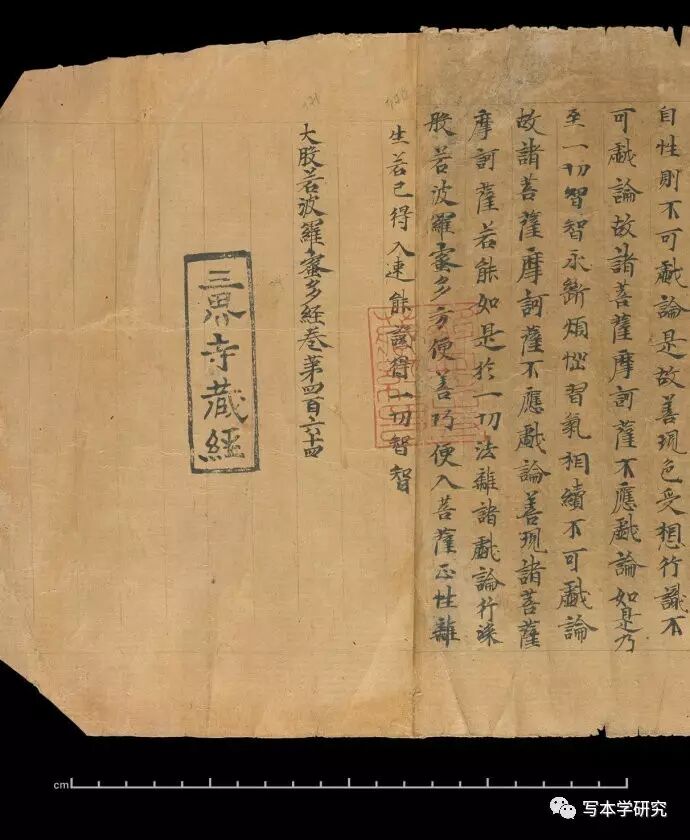 自性則不可戱論是故善現色受想行識不
可戱論故諸菩薩摩訶薩不應戱論如是乃
至一切智智永斷煩惱習氣相續不可戱論
故諸菩薩摩訶薩不應戱論善現諸菩薩
摩訶薩若能如是於一切法離諸戱論行深
般若波羅蜜多方便善巧便入菩薩正性離
生若已得入速能證得一切智智
大般若波羅蜜多經卷第四百六十四
三界寺藏經
cm
写本学研究